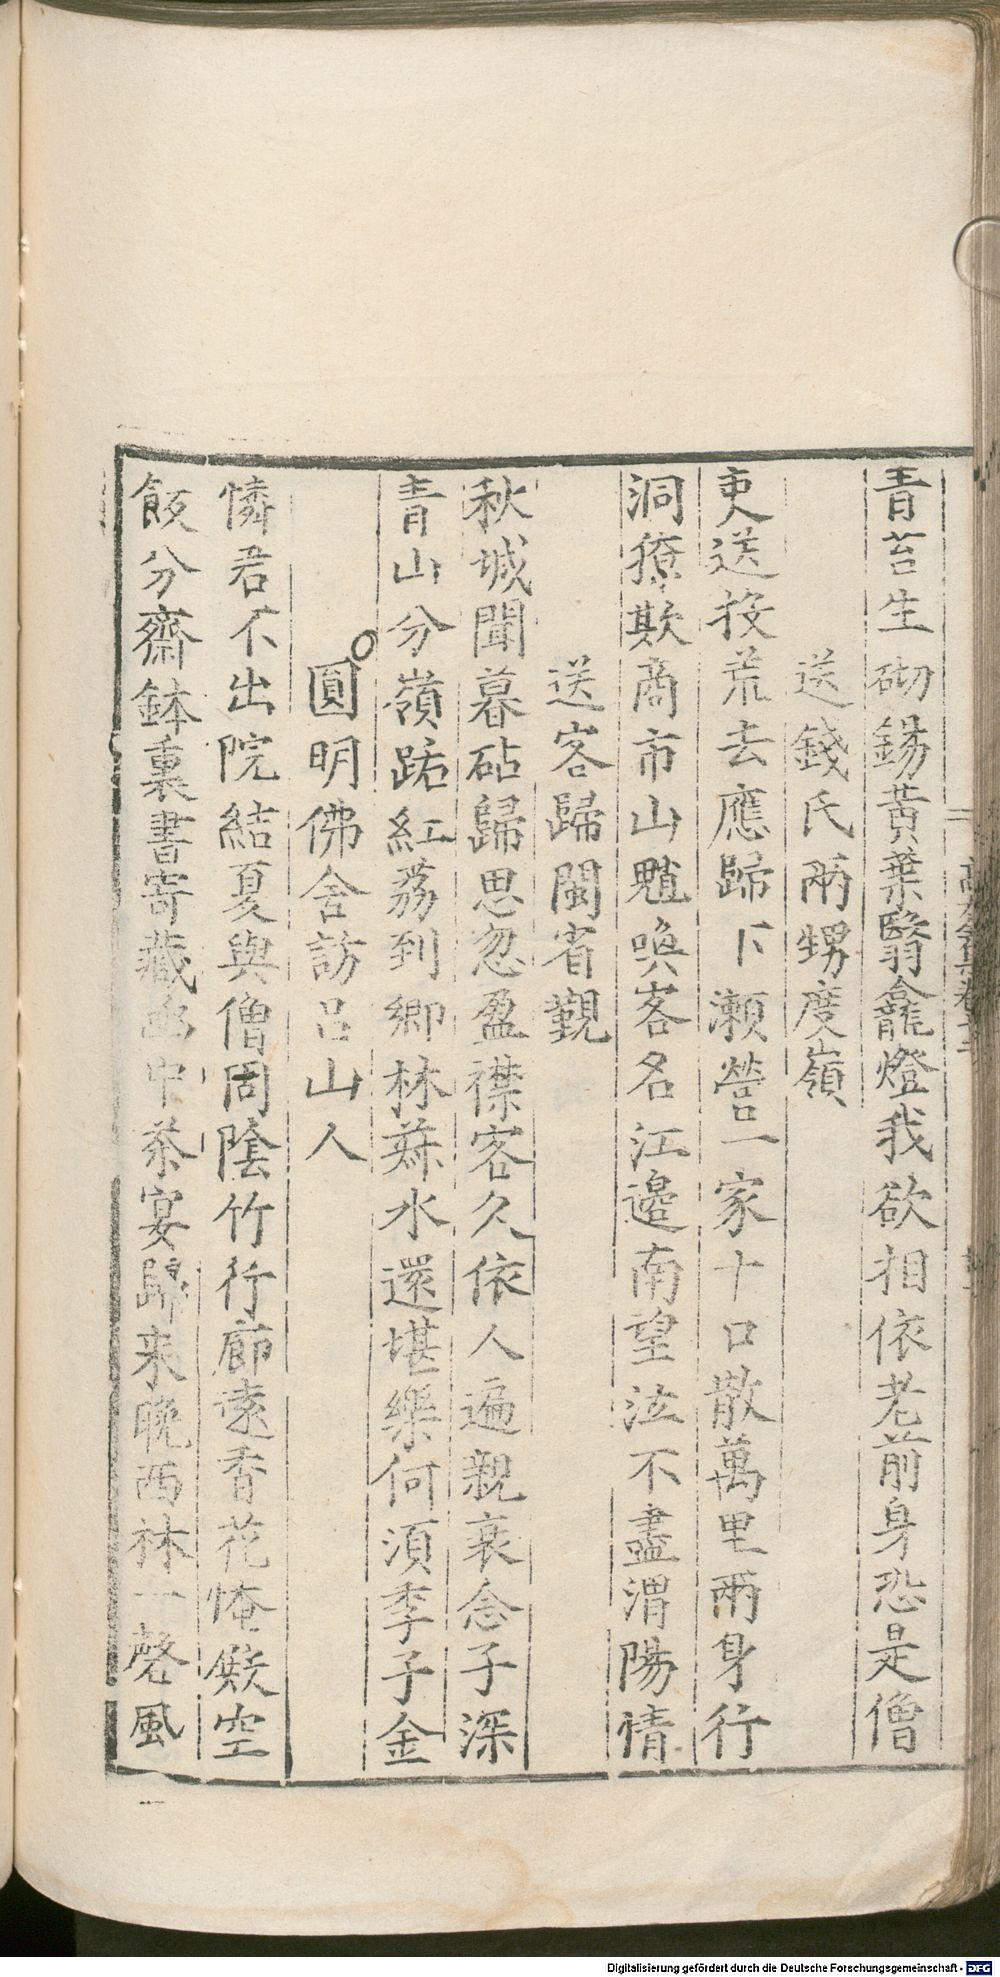 青苔生砌錫黃葉翳龕燈我欲相依老前身恐是僧
送錢氏兩甥度嶺
吏送投荒去應歸下瀨營一家十口散萬里兩身行
洞獠欺商市山魈喚客名江邊南望泣不盡渭陽情
送客歸閩省覲
秋城聞暮砧歸思忽盈襟客久依人遍親衰念子深
青山分嶺路紅荔到鄉林菽水還堪樂何須季子金
圓明佛舍訪呂山人
憐君不出院結夏與僧同陰竹行廊遠香花掩殿空
飯分齋鉢裏書寄藏函中茶宴歸来晚西林一磬風
Digitalisierung gefördert durch die Deutsche Forschungsgemeinschaft - DFG